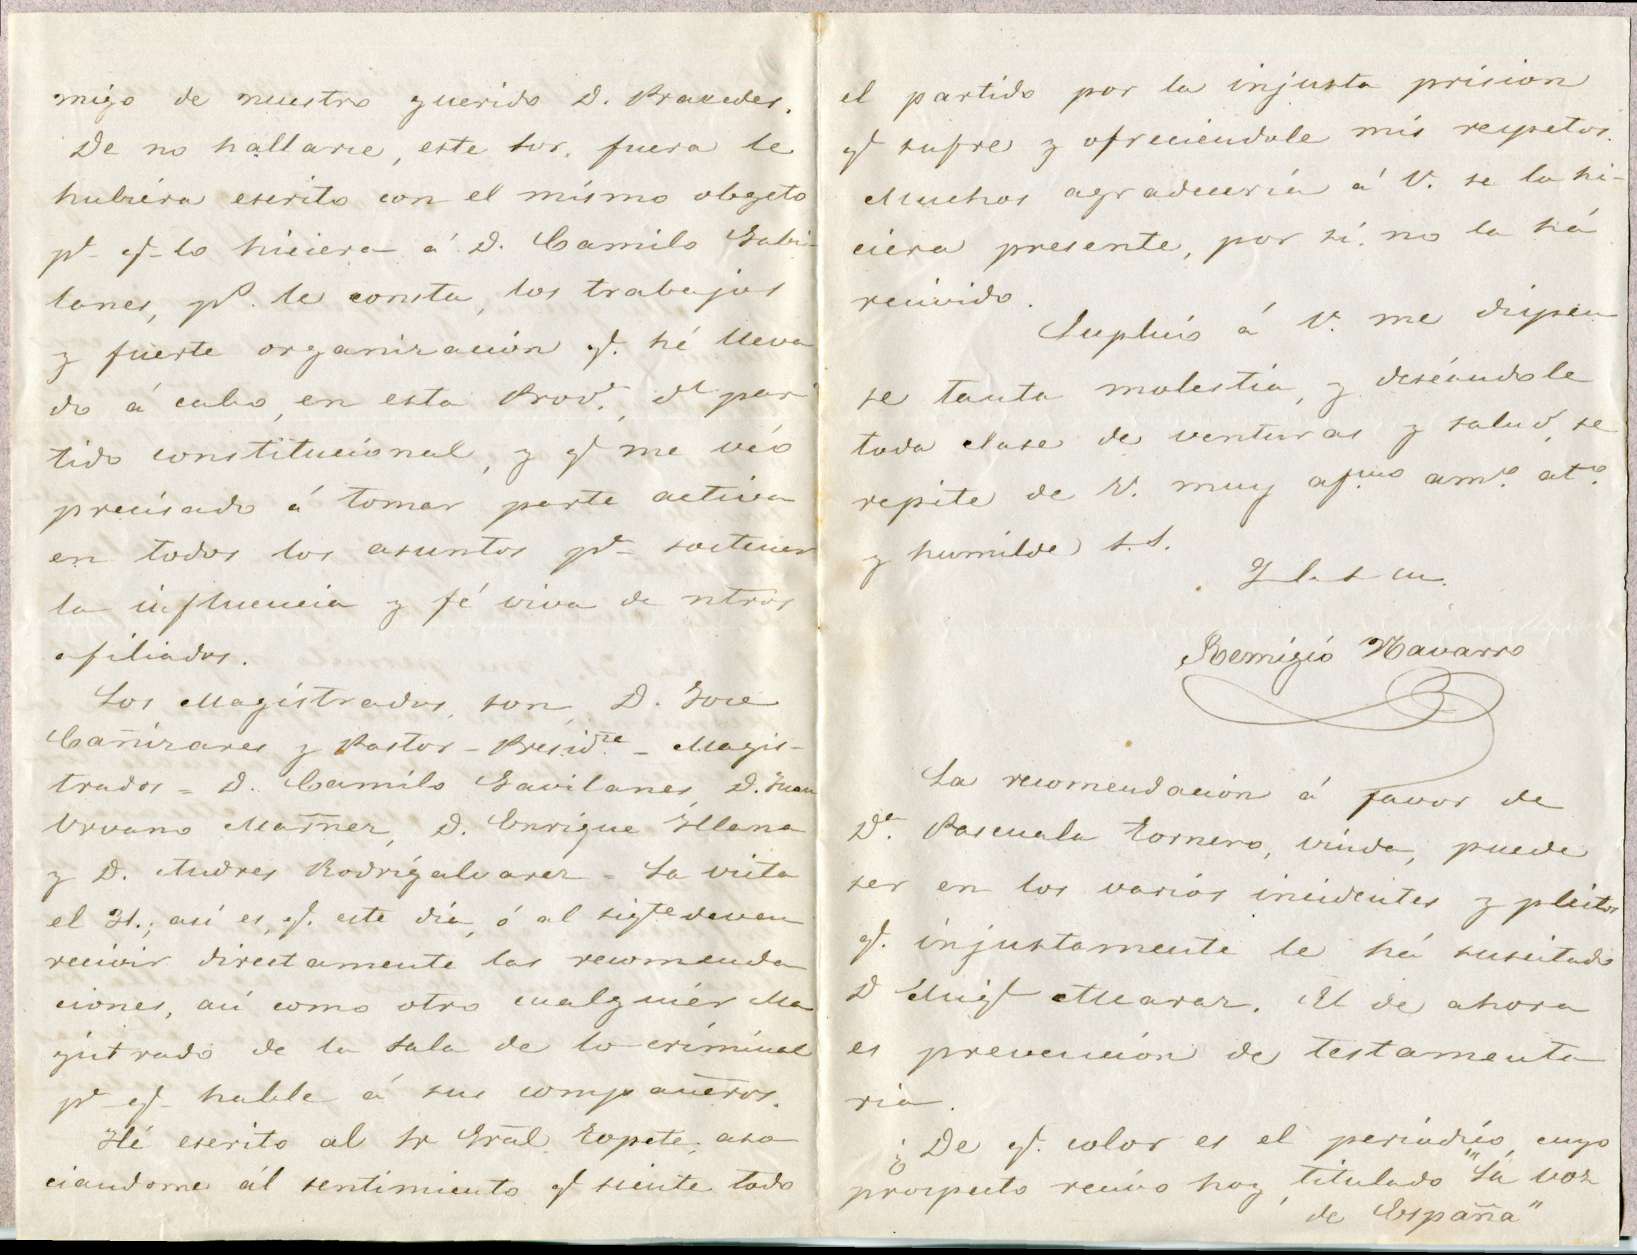 migo de nuestro querido D. Praxedes.
De no hallarse, este Sor. fuera le
hubiéra escrito con el mísmo obgeto
pª q.e lo hiciera á D. Camilo Gabi-
lanes, pº. le consta, los trabajos
y fuerte organización q.e hé lleva
do á cabo, en esta Prov.ª, d.l par
tido constituciónal, y q.e me véo
precísado á tomar parte activa
en todos los asuntos pª sostener
la influencia y fé viva de ntros
afiliados.
Los Magístrados, son, D. Jose
Cañizares y Pastor - Presid.te - Magis-
trados = D. Camilo Gavilanes, D. Juan
Urvano Matnez, D. Enrique Yllana
y D. Andres Rodrígalvarez - La vista
el 31.; así es, q.e este día, ó al sig.te deven
recivir directamente las recomenda
ciones, así como otro cualquiér Ma
gistrado de la Sala de lo críminal
pª q.e hable á sus compañeros.
Hé escrito al Sr Gral. Topete, aso
ciandome ál sentimiento q.e siente todo
el partido por la injusta prision
q.e sufre y ofreciéndole mis respetos.
Muchos agradeceria á V. se la hi-
ciera presente, por sí no la há
recivido.
Suplico á V. me dispen
se tanta molestia, y deséandole
toda clase de venturas y salud, se
repite de V. muy af.mo am.º at.º
y humilde S.S.
Q b s m.
Remigió Navarro
La recomendación á favor de
D.ª Pascuala Tornero, viuda, puede
ser en los varios incidentes y pleitos
q.e injustamente le há suscitado
D Mig.l Maraz. El de ahora
es prevención de testamenta
ria.
¿De q.e color es el periódico, cuyo
prospecto recivo hoy, titulado "La voz
de España"